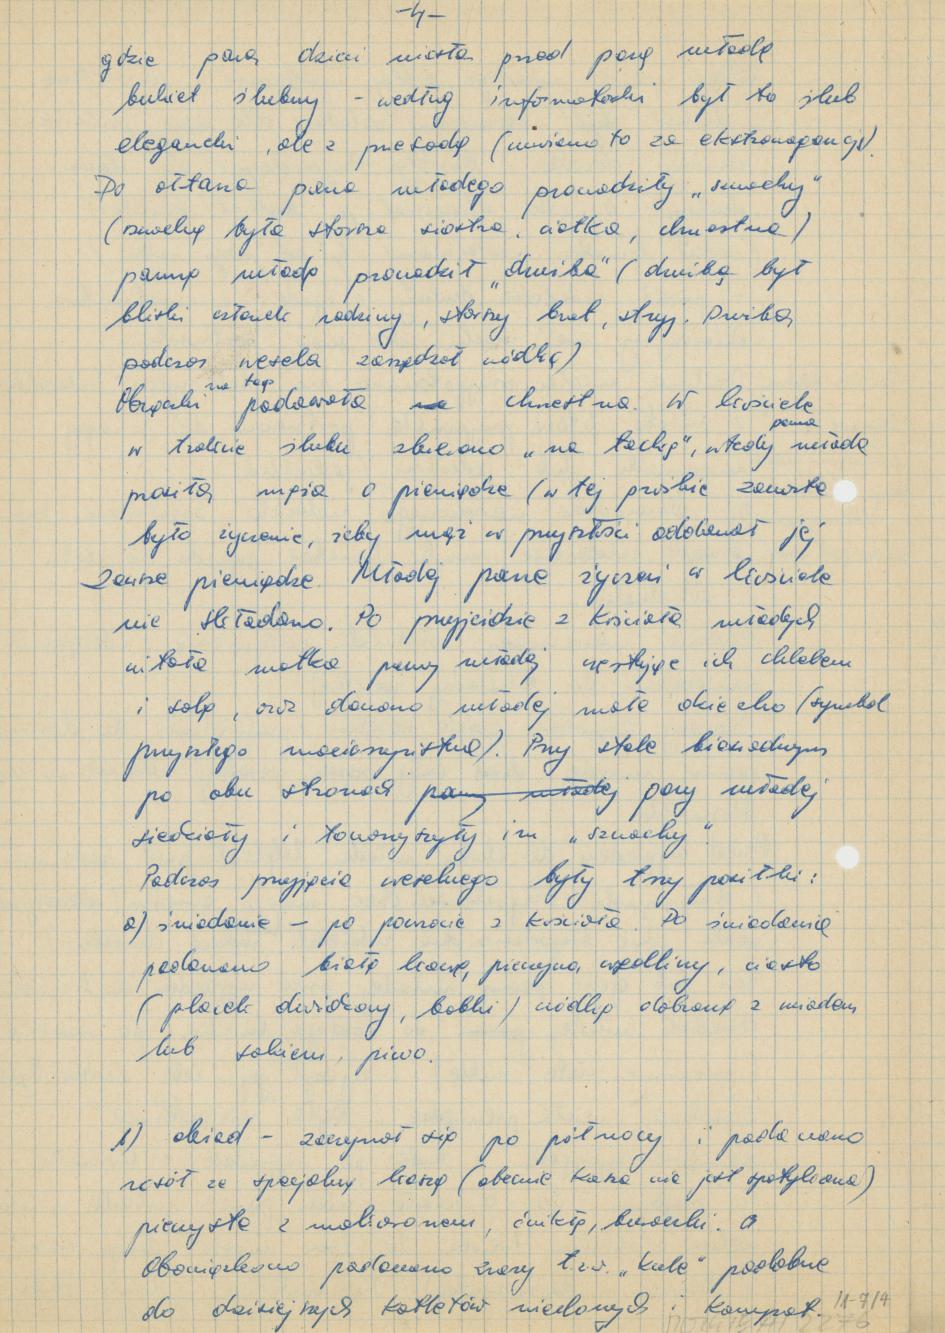 -4-
gdzie para dzieci niosła przed parą młodą
bukiet ślubny - według informatorki był to ślub
elegancki, ale z przesadą (uważano to za ekstrawagancję).
Do ołtarza pana młodego prowadziły „swachy"
(swachą była starsza siostra, ciotka, chrzestna)
pannę młodą prowadził „drużba" (drużbą był
bliski członek rodziny, starszy brat, stryj. Drużba
podczas wesela zarządzał wódką)
Obrączki na tacę podawała chrzestna. W kościele
w trakcie ślubu zbierano „na tackę", wtedy panna młoda
prosiła męża o pieniądze (w tej prośbie zawarte
było życzenie, żeby mąż w przyszłości oddawał jej
zawsze pieniądze. Młodej parze życzeń w kościele
nie składano. Po przyjeździe z kościoła młodych
witała matka panny młodej częstując ich chlebem
i solą, oraz dawano młodej małe dziecko (symbol
przyszłego macierzyństwa). Przy stole biesiadnym
po obu stronach panny młodej pary młodej
siedziały i towarzyszyły im „swachy".
Podczas przyjęcia weselnego były trzy posiłki:
a) śniadanie - po powrocie z kościoła. Do śniadania
podawano białą kawę, pieczywo, wędliny, ciasto
(placek drożdżowy, babki) wódkę dobraną z miodem
lub sokiem, piwo.
b) obiad - zaczynał się po północy i podawano
rosół ze specjalną kaszą (obecnie kasza nie jest spotykana)
pieczyste z makaronem, ćwikłę, buraczki. a
Obowiązkowo podawano zrazy tzw. „kule" podobne
do dzisiejszych kotletów mielonych i kompot.